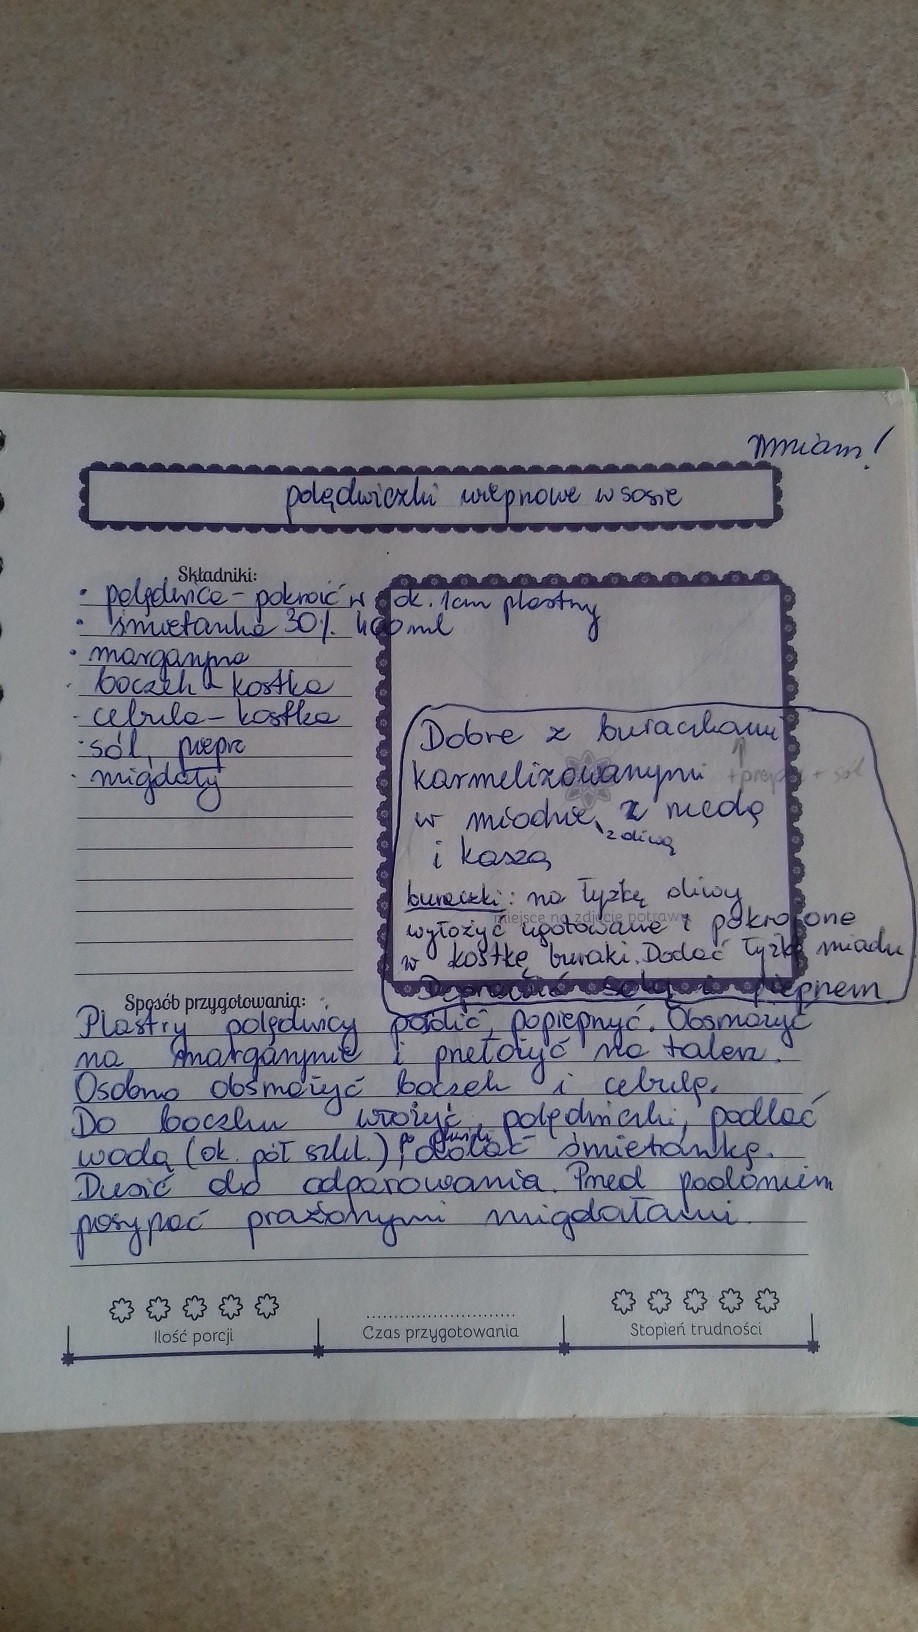 mniam!
polędwiczki wieprzowe w sosie
Składniki:
• polędwica - pokroić w ok. 1cm plastry
• śmietanka 30% 400 ml
• margaryna
• boczek - kostka
• cebula - kostka
• sól, pieprz
• migdały
Dobre z buraczkami
karmelizowanymi + pieprz + sól
w miodzie, z
z oliwą
i kaszą
buraczki: na łyżkę oliwy
miejsce na zdjęcie potrawy
wyłożyć ugotowane i pokrojone
w kostkę buraki. Dodać łyżkę miodu
Doprawić solą i pieprzem
Sposób przygotowania:
Plastry polędwicy posolić, popieprzyć. Obsmażyć
na margarynie i przełożyć na talerz.
Osobno obsmażyć boczek i cebulę.
Do boczku włożyć polędwiczki, podlać
wodą (ok. pół szkl.), po chwili dodać śmietankę.
Dusić do odparowania. Przed podaniem
posypać prażonymi migdałami.
Ilość porcji
Czas przygotowania
Stopień trudności